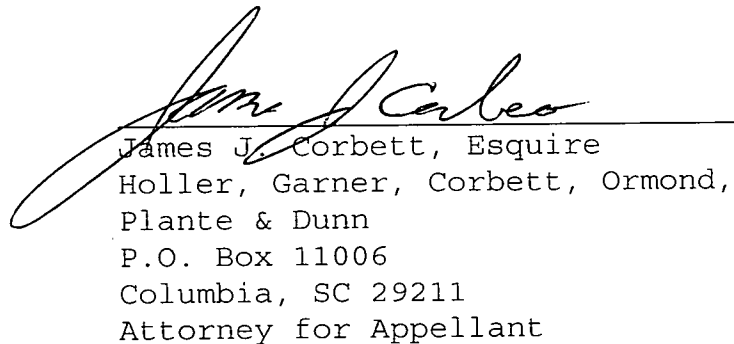 James J Corbett
James J. Corbett, Esquire
Holler, Garner, Corbett, Ormond,
Plante & Dunn
P.O. Box 11006
Columbia, SC 29211
Attorney for Appellant